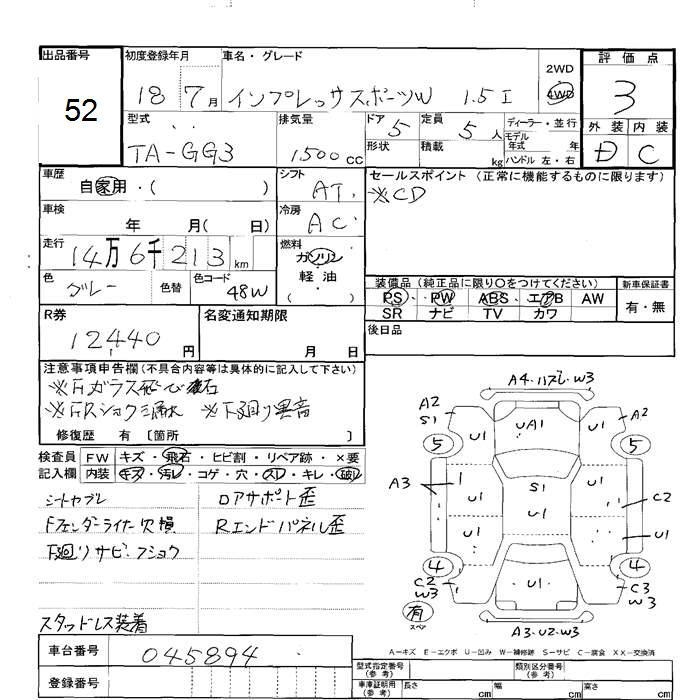 出品番号
52
初度登録年月
18 7月
車名・グレード
インプレッサスポーツW 1.5I
2WD
4WD
評価点
3
外装 内装
D C
型式
TA-GG3
排気量
1,500cc
ドア 5
形状
定員 5人
積載 kg
ディーラー・並行
モデル年式 年
ハンドル 左・右
車歴
自家用・( )
シフト
AT
セールスポイント(正常に機能するものに限ります)
※CD
車検
年 月( 日)
冷房
AC
走行
14万6千213km
燃料
ガソリン
軽油
( )
色
グレー
色替
色コード
48W
装備品(純正品に限り○をつけてください)
PS PW ABS エアB AW
SR ナビ TV カワ
新車保証書
有・無
R券
12440円
名変通知期限
月 日
後日品
注意事項申告欄(不具合内容等は具体的に記入して下さい)
※Fガラス飛び石
※FRショック漏れ ※下廻り異音
修復歴 有〔箇所 〕
検査員記入欄
FW キズ・飛石・ヒビ割・リペア跡・×要
内装 キズ・汚レ・コゲ・穴・スレ・キレ・破レ
シートヤブレ
Fフェンダーライナー欠損
下廻りサビ・フショク
スタッドレス装着
ロアサポート歪
Rエンドパネル歪
A4・ハズレ・W3
A2
S1
U1
UA1
U1
A2
5
5
A3
U1
S1
U1
U1
C2
U1
U1
4
4
C2
W3
U1
C3
W3
有
スペア
A3・U2・W3
A-キズ E-エクボ U-凹み W-補修跡 S-サビ C-腐食 XX-交換済
車台番号
045894
登録番号
型式指定番号(参考)
類別区分番号(参考)
車庫証明用(参考)
長さ cm
幅 cm
高さ cm